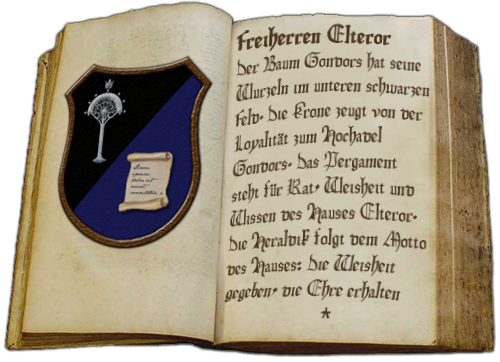 Freiherren Elteror
Der Baum Gondors hat seine
Wurzeln im unteren schwarzen
Feld. Die Krone zeugt von der
Loyalität zum Hochadel
Gondors. Das Pergament
steht für Rat, Weisheit und
Wissen des Hauses Elteror.
Die Heraldik folgt dem Motto
des Hauses: Die Weisheit
gegeben, die Ehre erhalten
*